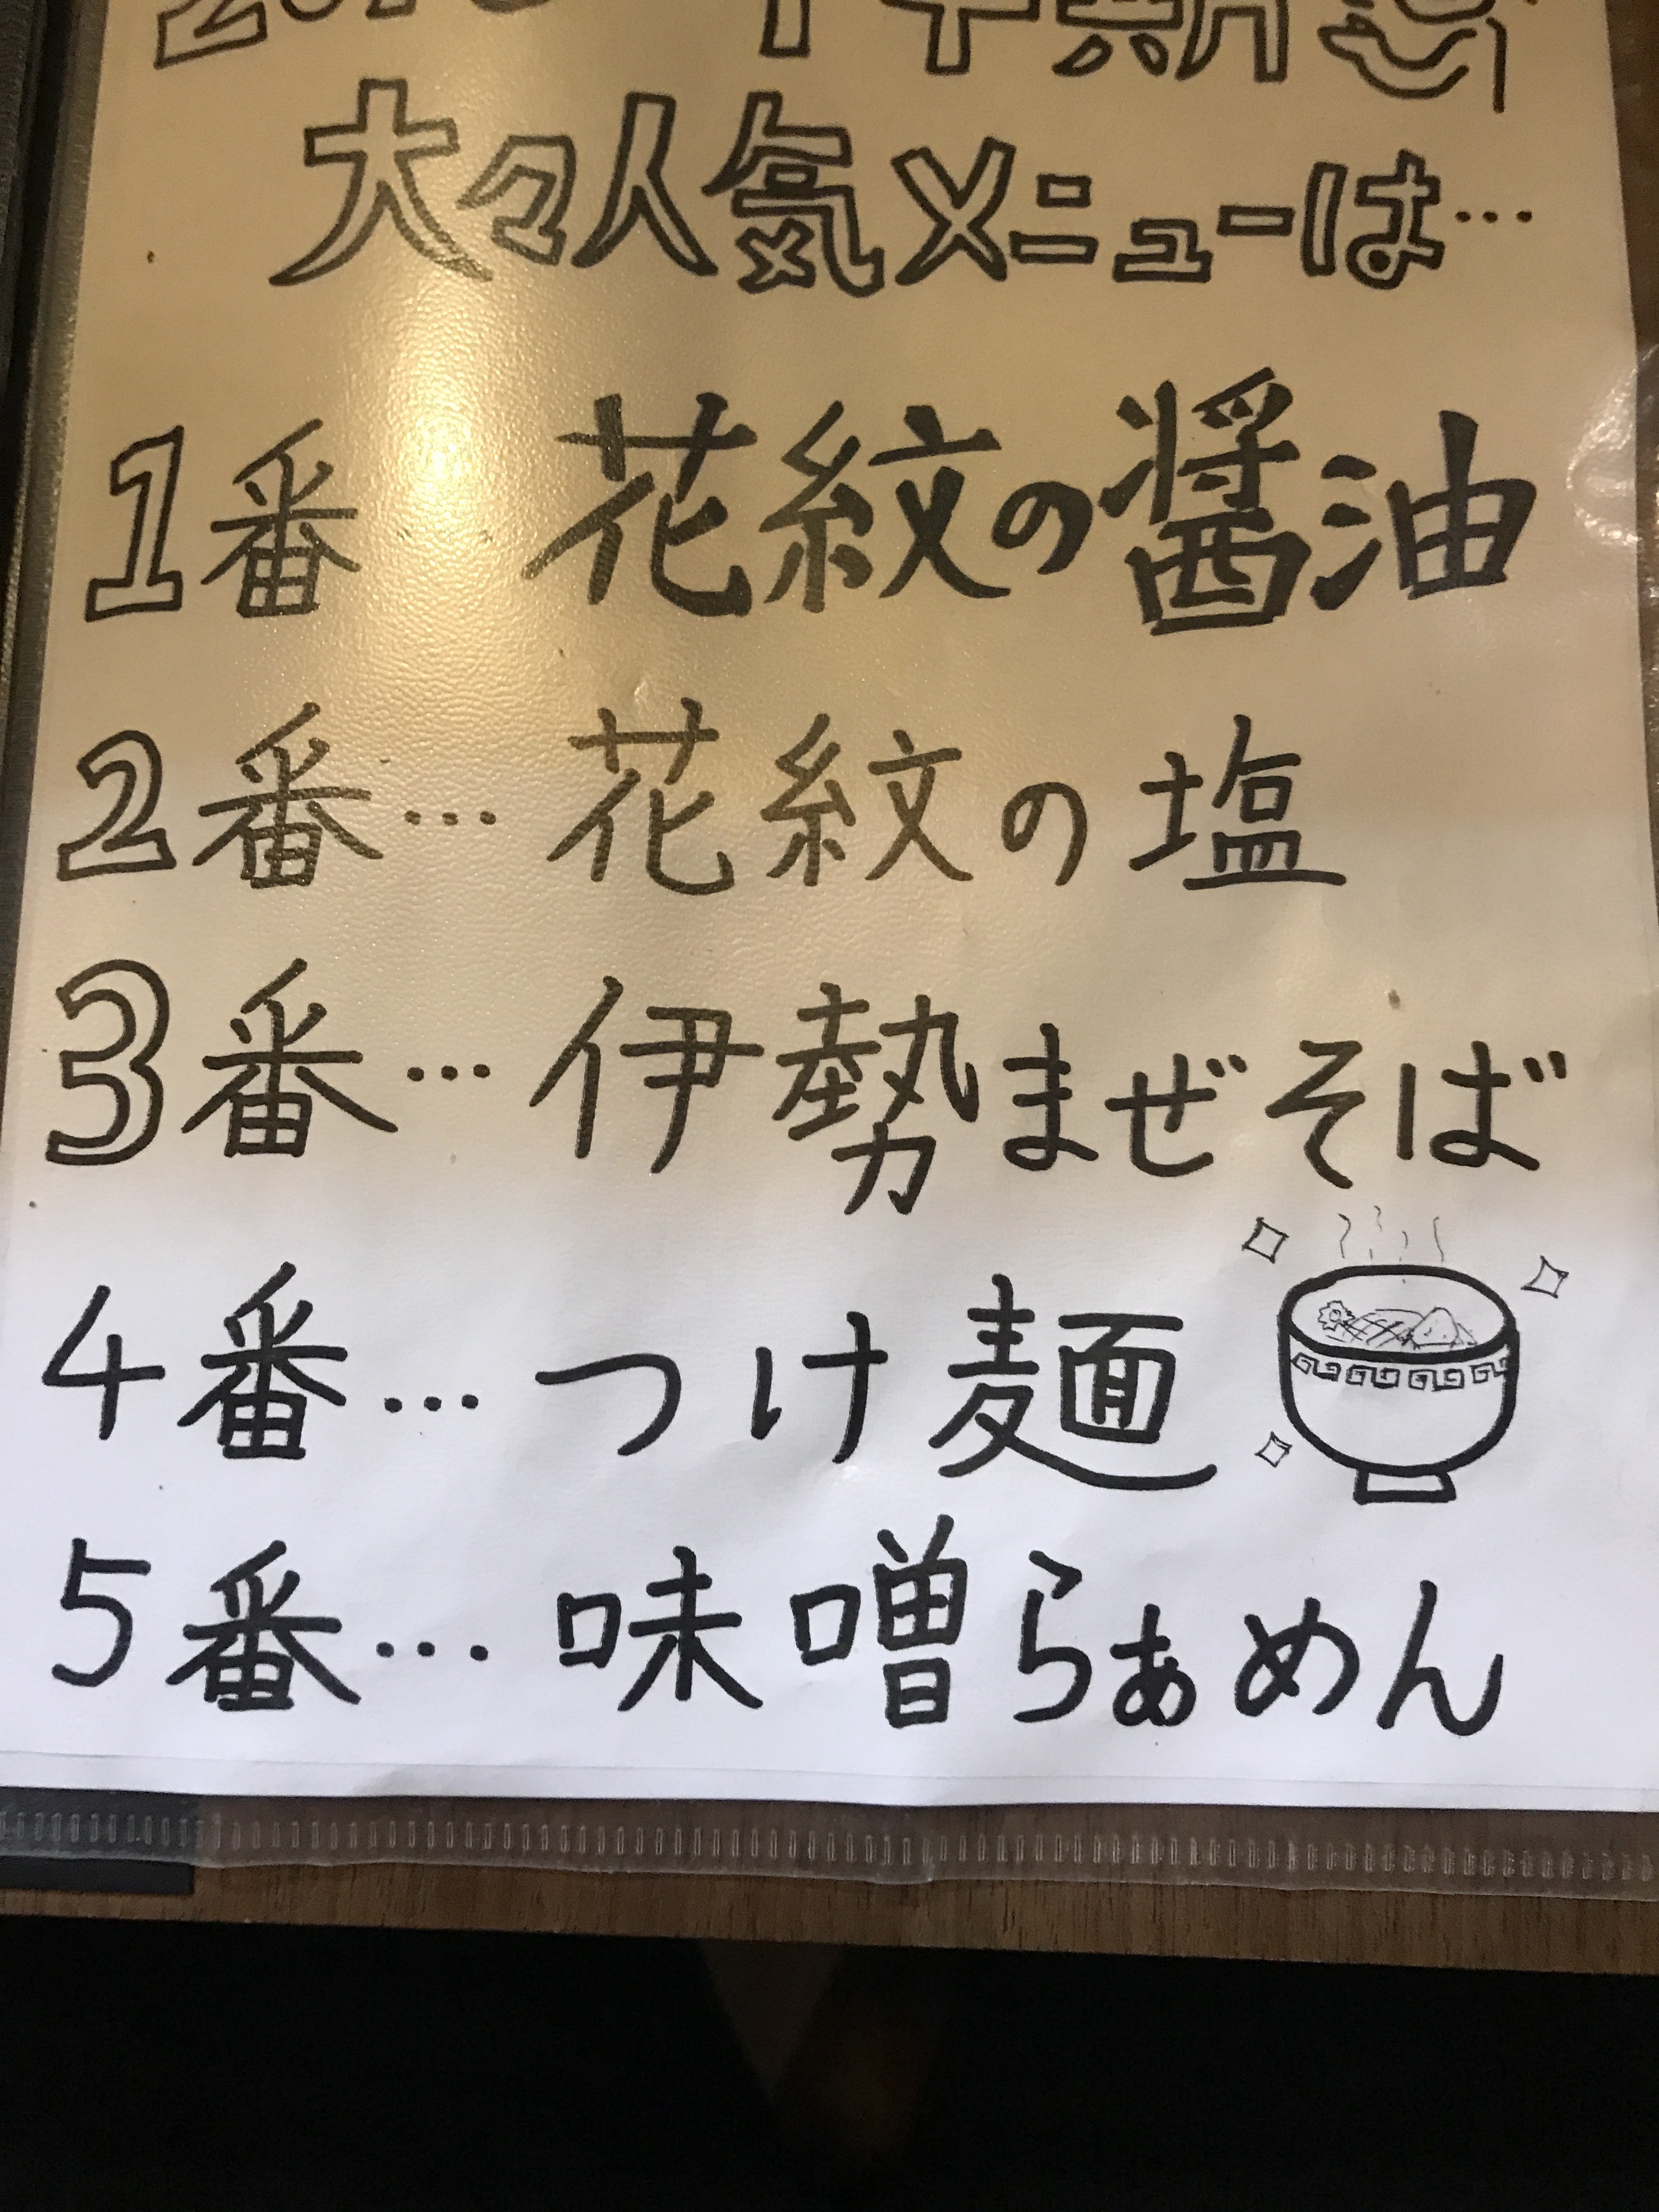 大々人気メニューは…
1番… 花紋の醤油
2番… 花紋の塩
3番… 伊勢まぜそば
4番… つけ麺
5番… 味噌らぁめん